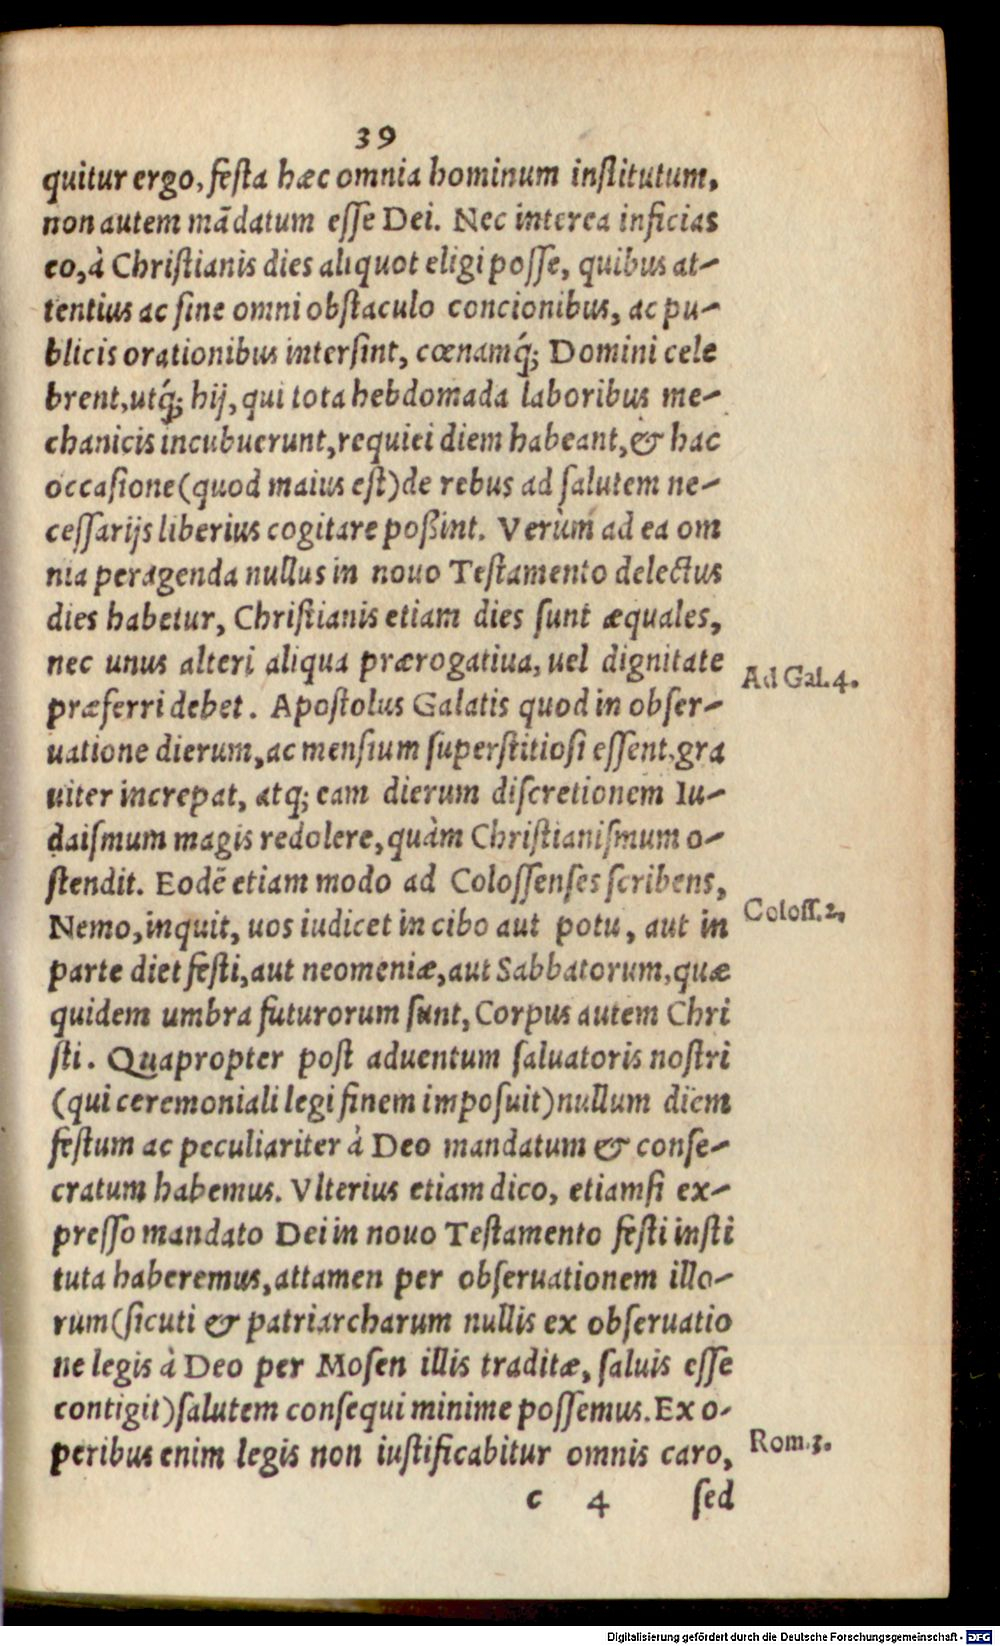 39
quitur ergo, festa hæc omnia hominum institutum,
non autem mādatum esse Dei. Nec interea inficias
eo, à Christianis dies aliquot eligi posse, quibus at-
tentius ac sine omni obstaculo concionibus, ac pu-
blicis orationibus intersint, cœnamq́; Domini cele
brent, utq́; hij, qui tota hebdomada laboribus me-
chanicis incubuerunt, requiei diem habeant, & hac
occasione (quod maius est) de rebus ad salutem ne-
cessarijs liberius cogitare poßint. Verùm ad ea om
nia peragenda nullus in nouo Testamento delectus
dies habetur, Christianis etiam dies sunt æquales,
nec unus alteri aliqua prærogatiua, uel dignitate
præferri debet. Apostolus Galatis quod in obser-
Ad Gal. 4.
uatione dierum, ac mensium superstitiosi essent, gra
uiter increpat, atq; eam dierum discretionem Iu-
daismum magis redolere, quàm Christianismum o-
stendit. Eodē etiam modo ad Colossenses scribens,
Nemo, inquit, uos iudicet in cibo aut potu, aut in
Coloss. 2.
parte diei festi, aut neomeniæ, aut Sabbatorum, quæ
quidem umbra futurorum sunt, Corpus autem Chri
sti. Quapropter post aduentum saluatoris nostri
(qui ceremoniali legi finem imposuit) nullum diem
festum ac peculiariter à Deo mandatum & conse-
cratum habemus. Vlterius etiam dico, etiamsi ex-
presso mandato Dei in nouo Testamento festi insti
tuta haberemus, attamen per obseruationem illo-
rum (sicuti & patriarcharum nullis ex obseruatio
ne legis à Deo per Mosen illis traditæ, saluis esse
contigit) salutem consequi minime possemus. Ex o-
peribus enim legis non iustificabitur omnis caro,
Rom. 3.
c 4 sed
Digitalisierung gefördert durch die Deutsche Forschungsgemeinschaft - DFG